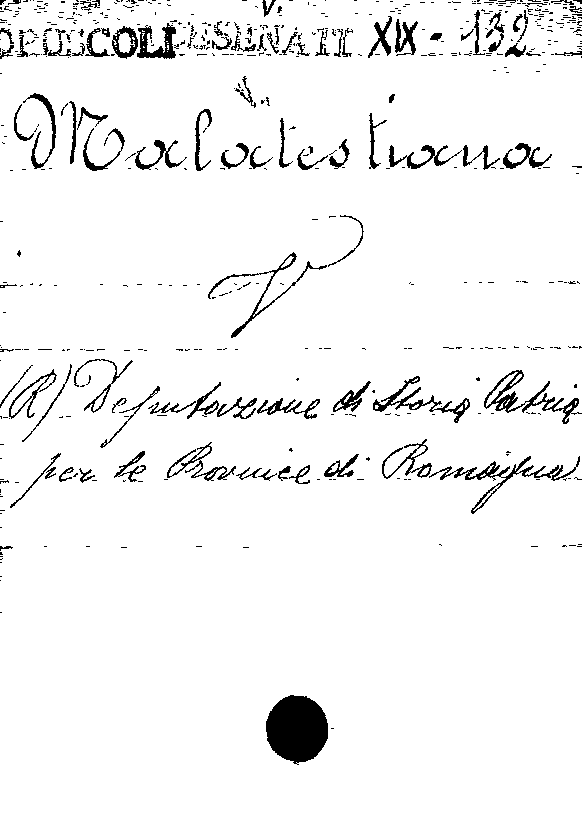 V.
OPUSCOLI CESENATI XIX - 132
V.
Malatestiana
V
(R) Deputazione di Storia Patria
per le Province di Romagna